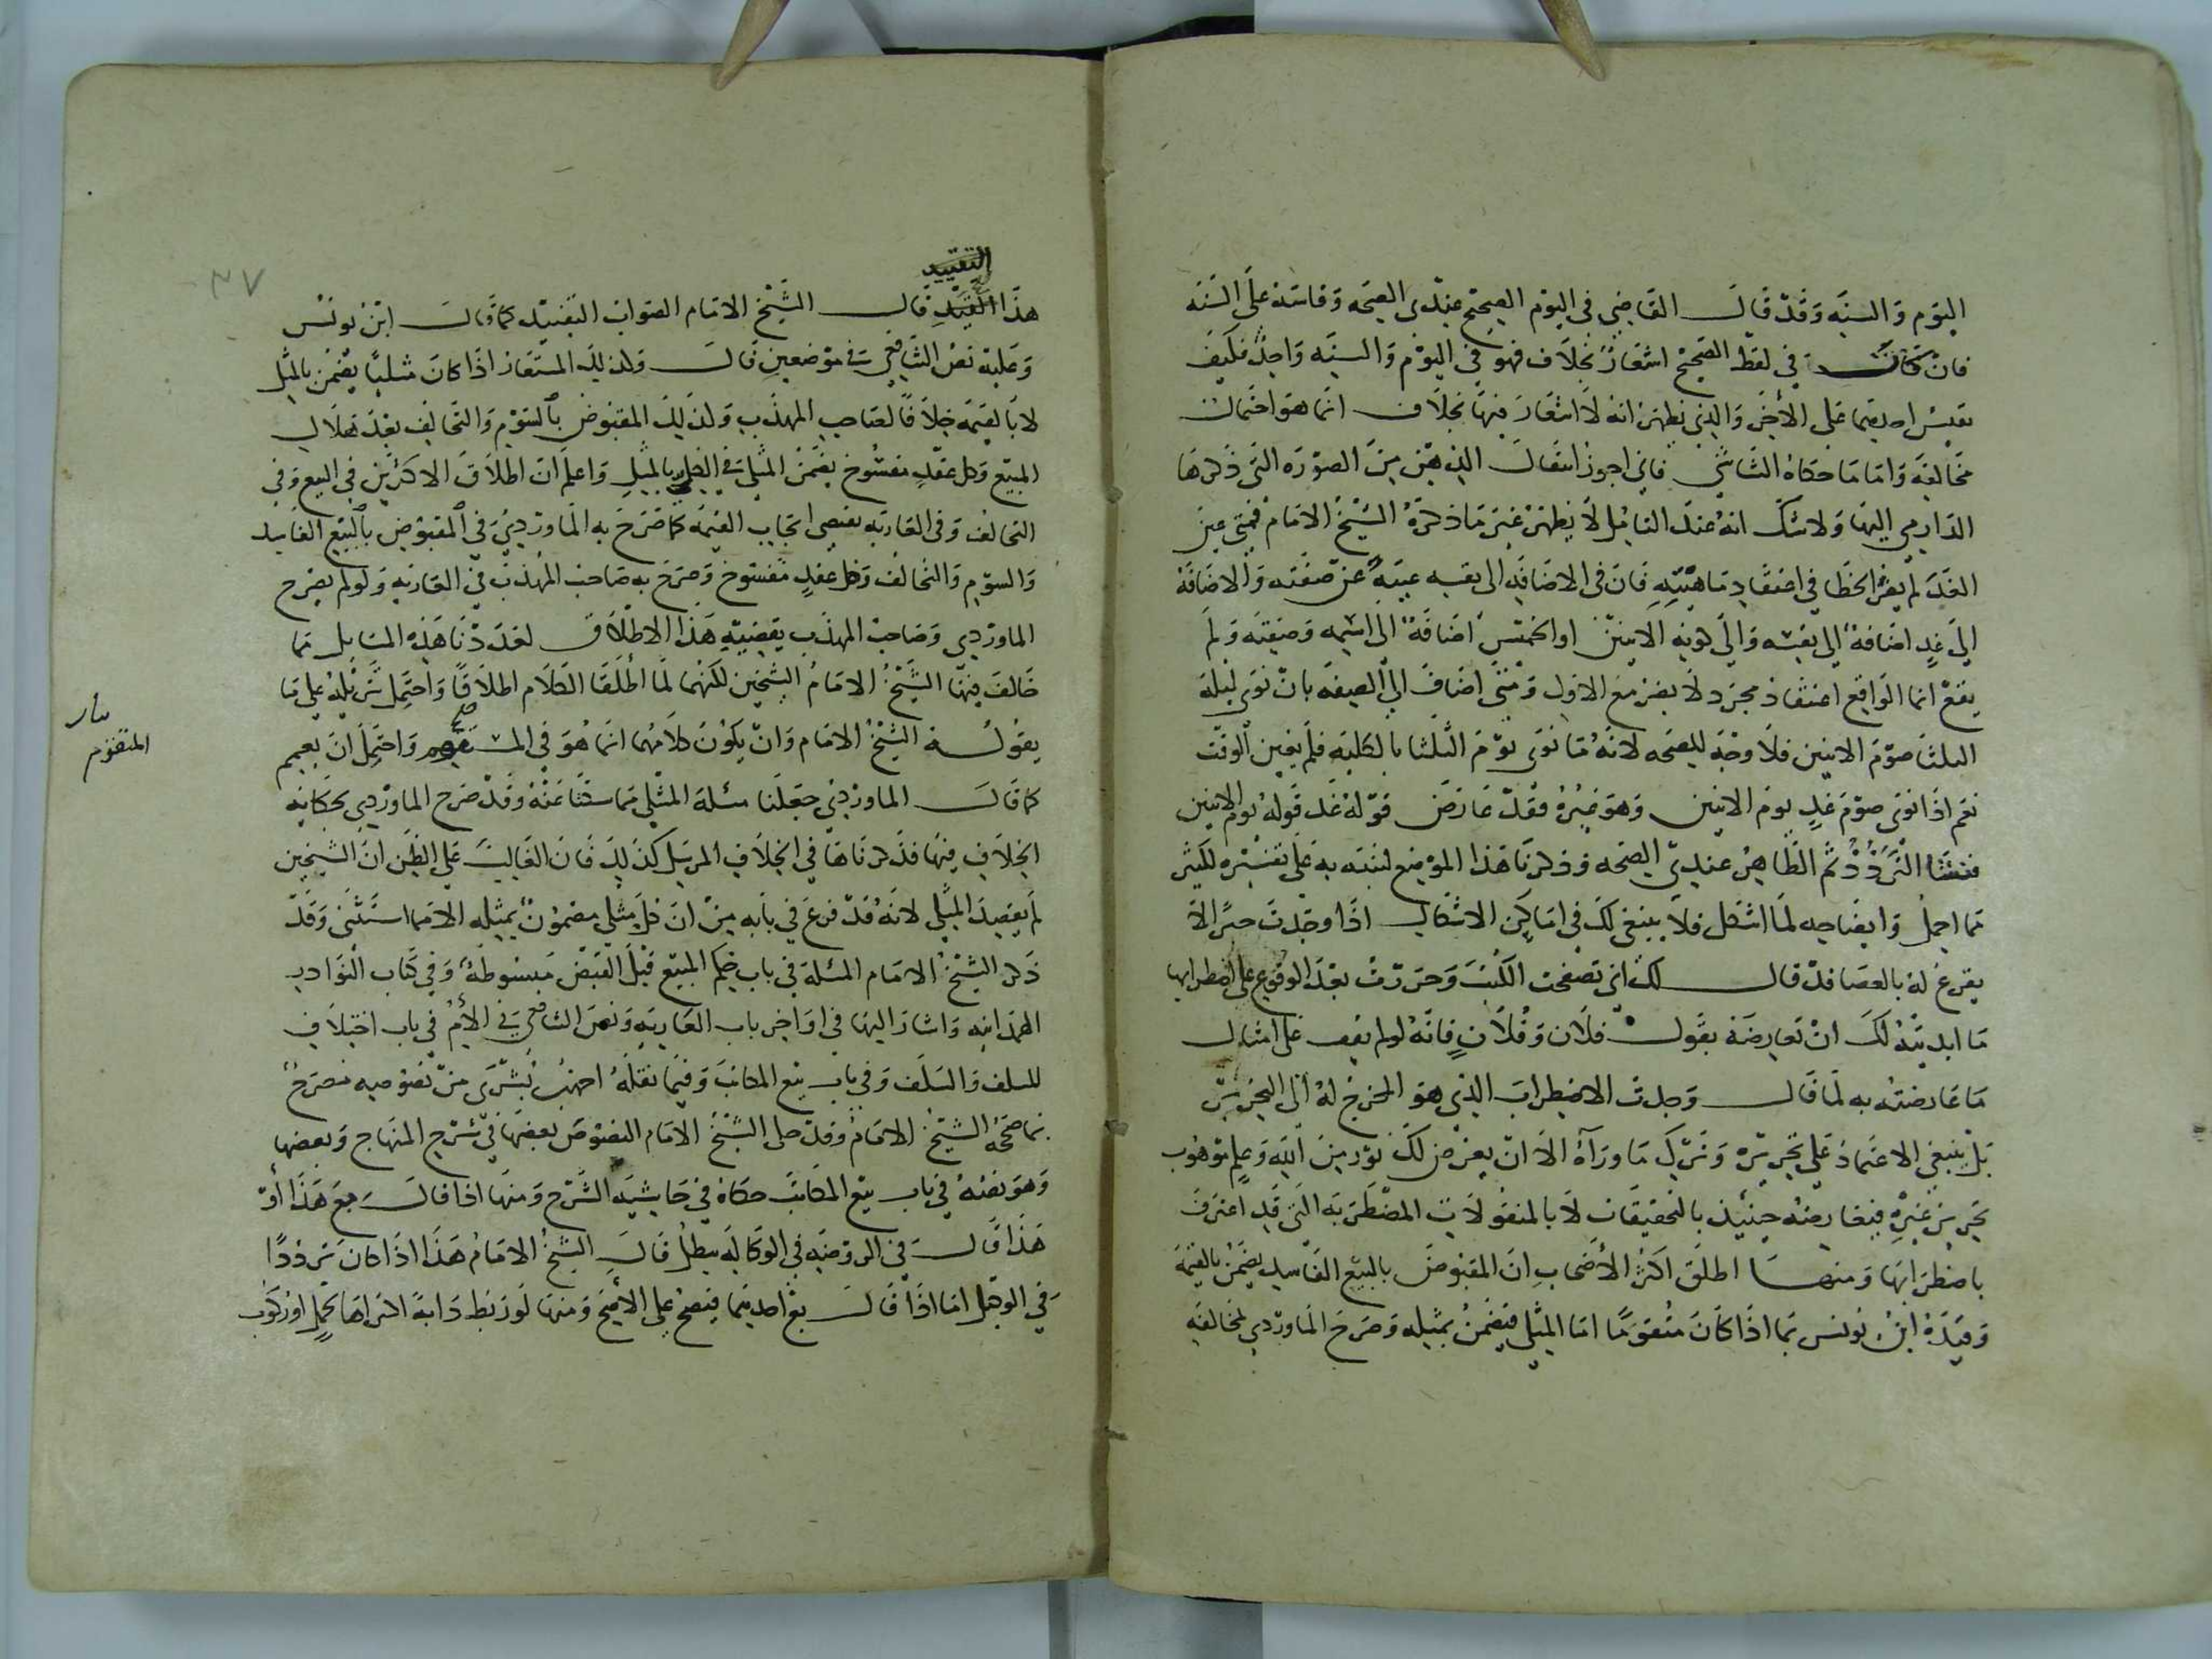 اليوم والسنه وقد قال القاضي في اليوم الصحيح عندي الصحه وقاسه على السنه
فان كان في لفظ الصحيح اشعار بخلاف فهو في اليوم والسنه واحد فكيف
يقيس احديهما على الاخر والذي يظهر انه لا اشعار فيها بخلاف انما هو احتمال
مخالفه واما ما حكاه الشاشي فاني اجوز انتقال الذهن من الصوره التي ذكرها
الدارمي اليها ولا شك انه عند التامل لا يظهر غير ما ذكره الشيخ الامام فمتى عين
الغد لم يضر الخطا في اعتقاد ماهيته فان في الاضافه الى نفسه غنية عن صفته والاضافة
الى غد اضافة الى نفسه والى كونه الاثنين او الخميس اضافة الى اسمه وصفته ولم
يقع انما الواقع اعتقاد مجرد لا يضر مع الاول ومتى اضاف الى الصفه بان نوى ليلة
الثلثا صوم الاثنين فلا وجه للصحه لانه ما نوى يوم الثلثا بالكليه فلم يعين الوقت
نعم اذا نوى صوم غد يوم الاثنين وهو غيره فقد عارض قوله غد قوله يوم الاثنين
فنشا التردد ثم الظاهر عندي الصحه وذكرنا هذا الموضع لننبه به على تفسيره لكثير
مما اجمل وايضاحه لما اشكل فلا ينبغي لك في اماكن الاشكال اذا وجدت حبرا لا
يقرع له بالعصا قد قال لك اني تصفحت الكتب وحررت بعد الوقوع على اضطرابها
ما ابديته لك ان تعارضه بقول فلان وفلان فانه لو لم يقف على امثال
ما عارضته به لما قال وجدت الاضطراب الذي هو المحوج له الى التحرير
بل ينبغي الاعتماد على تحريره وترك ما وراه الا ان يعرض لك نور من الله وعلم موهوب
تحرير غيره فيعارضه حينئذ بالتحقيقات لا بالمنقولات المضطربه التي قد اعترف
باضطرابها ومنها اطلق اكثر الاصحاب ان المقبوض بالبيع الفاسد يضمن بالقيمة
وقيده ابن يونس بما اذا كان متقوما اما المثلي فيضمن بمثله وصرح الماوردي لمخالفه
التقييد
هذا القيد قال الشيخ الامام الصواب التقييد كما قال ابن يونس
وعليه نص الشافعي في موضعين قال وكذلك المستعار اذا كان مثليا يضمن بالمثل
لا بالقيمه خلافا لصاحب المهذب وكذلك المقبوض بالسوم والتحالف بعد هلاك
المبيع وكل عقد مفسوخ يضمن المثلي في الكل بالمثل واعلم ان اطلاق الاكثرين في البيع وفي
التحالف وفي العاريه يقتضي ايجاب القيمه كما صرح به الماوردي في المقبوض بالبيع الفاسد
والسوم والتحالف وكل عقد مفسوخ وصرح به صاحب المهذب في العاريه ولو لم يصرح
الماوردي وصاحب المهذب بقضية هذا الاطلاق لعددنا هذه المسايل مما
خالف فيها الشيخ الامام الشيخين لكنهما لما اطلقا الكلام اطلاقا واحتمل تنزيله على ما
يقوله الشيخ الامام وان يكون كلامهما انما هو في المتقوم واحتمل ان يعمم
كما قال الماوردي جعلنا مسئلة المثلي مما سكتا عنه وقد صرح الماوردي بحكاية
الخلاف فيها فذكرناها في الخلاف المرسل كذلك فان الغالب على الظن ان الشيخين
لم يقصدا المثلي لانه قد فرغ في بابه من ان كل مثلي مضمون بمثله الا ما استثنى وقد
ذكر الشيخ الامام المسئلة في باب حكم المبيع قبل القبض مبسوطة وفي كتاب النوادر
الهمدانيه واشار اليها في اواخر باب العاريه ونص الشافعي في الأم في باب اختلاف
للسلف والسلف وفي باب بيع المكاتب وفيما نقله احمد بن بشرى من نصوصه مصرح
بما صححه الشيخ الامام وقد حكى الشيخ الامام النصوص بعضها في شرح المنهاج وبعضها
وهو نصه في باب بيع المكاتب حكاه في حاشية الشرح ومنها اذا قال بع هذا أو
هذا قال في الروضه في الوكاله يبطل قال الشيخ الامام هذا اذا كان ترددا
في التوكيل اما اذا قال بع احديهما فيصح على الأصح ومنها لو ربط دابة اكتراها لحمل او ركوب
المتقوم
٣٧